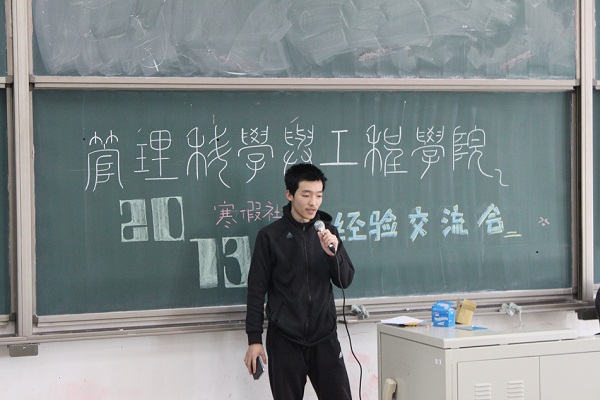 管理科學與工程學院
20 寒假社 经验交流会
13